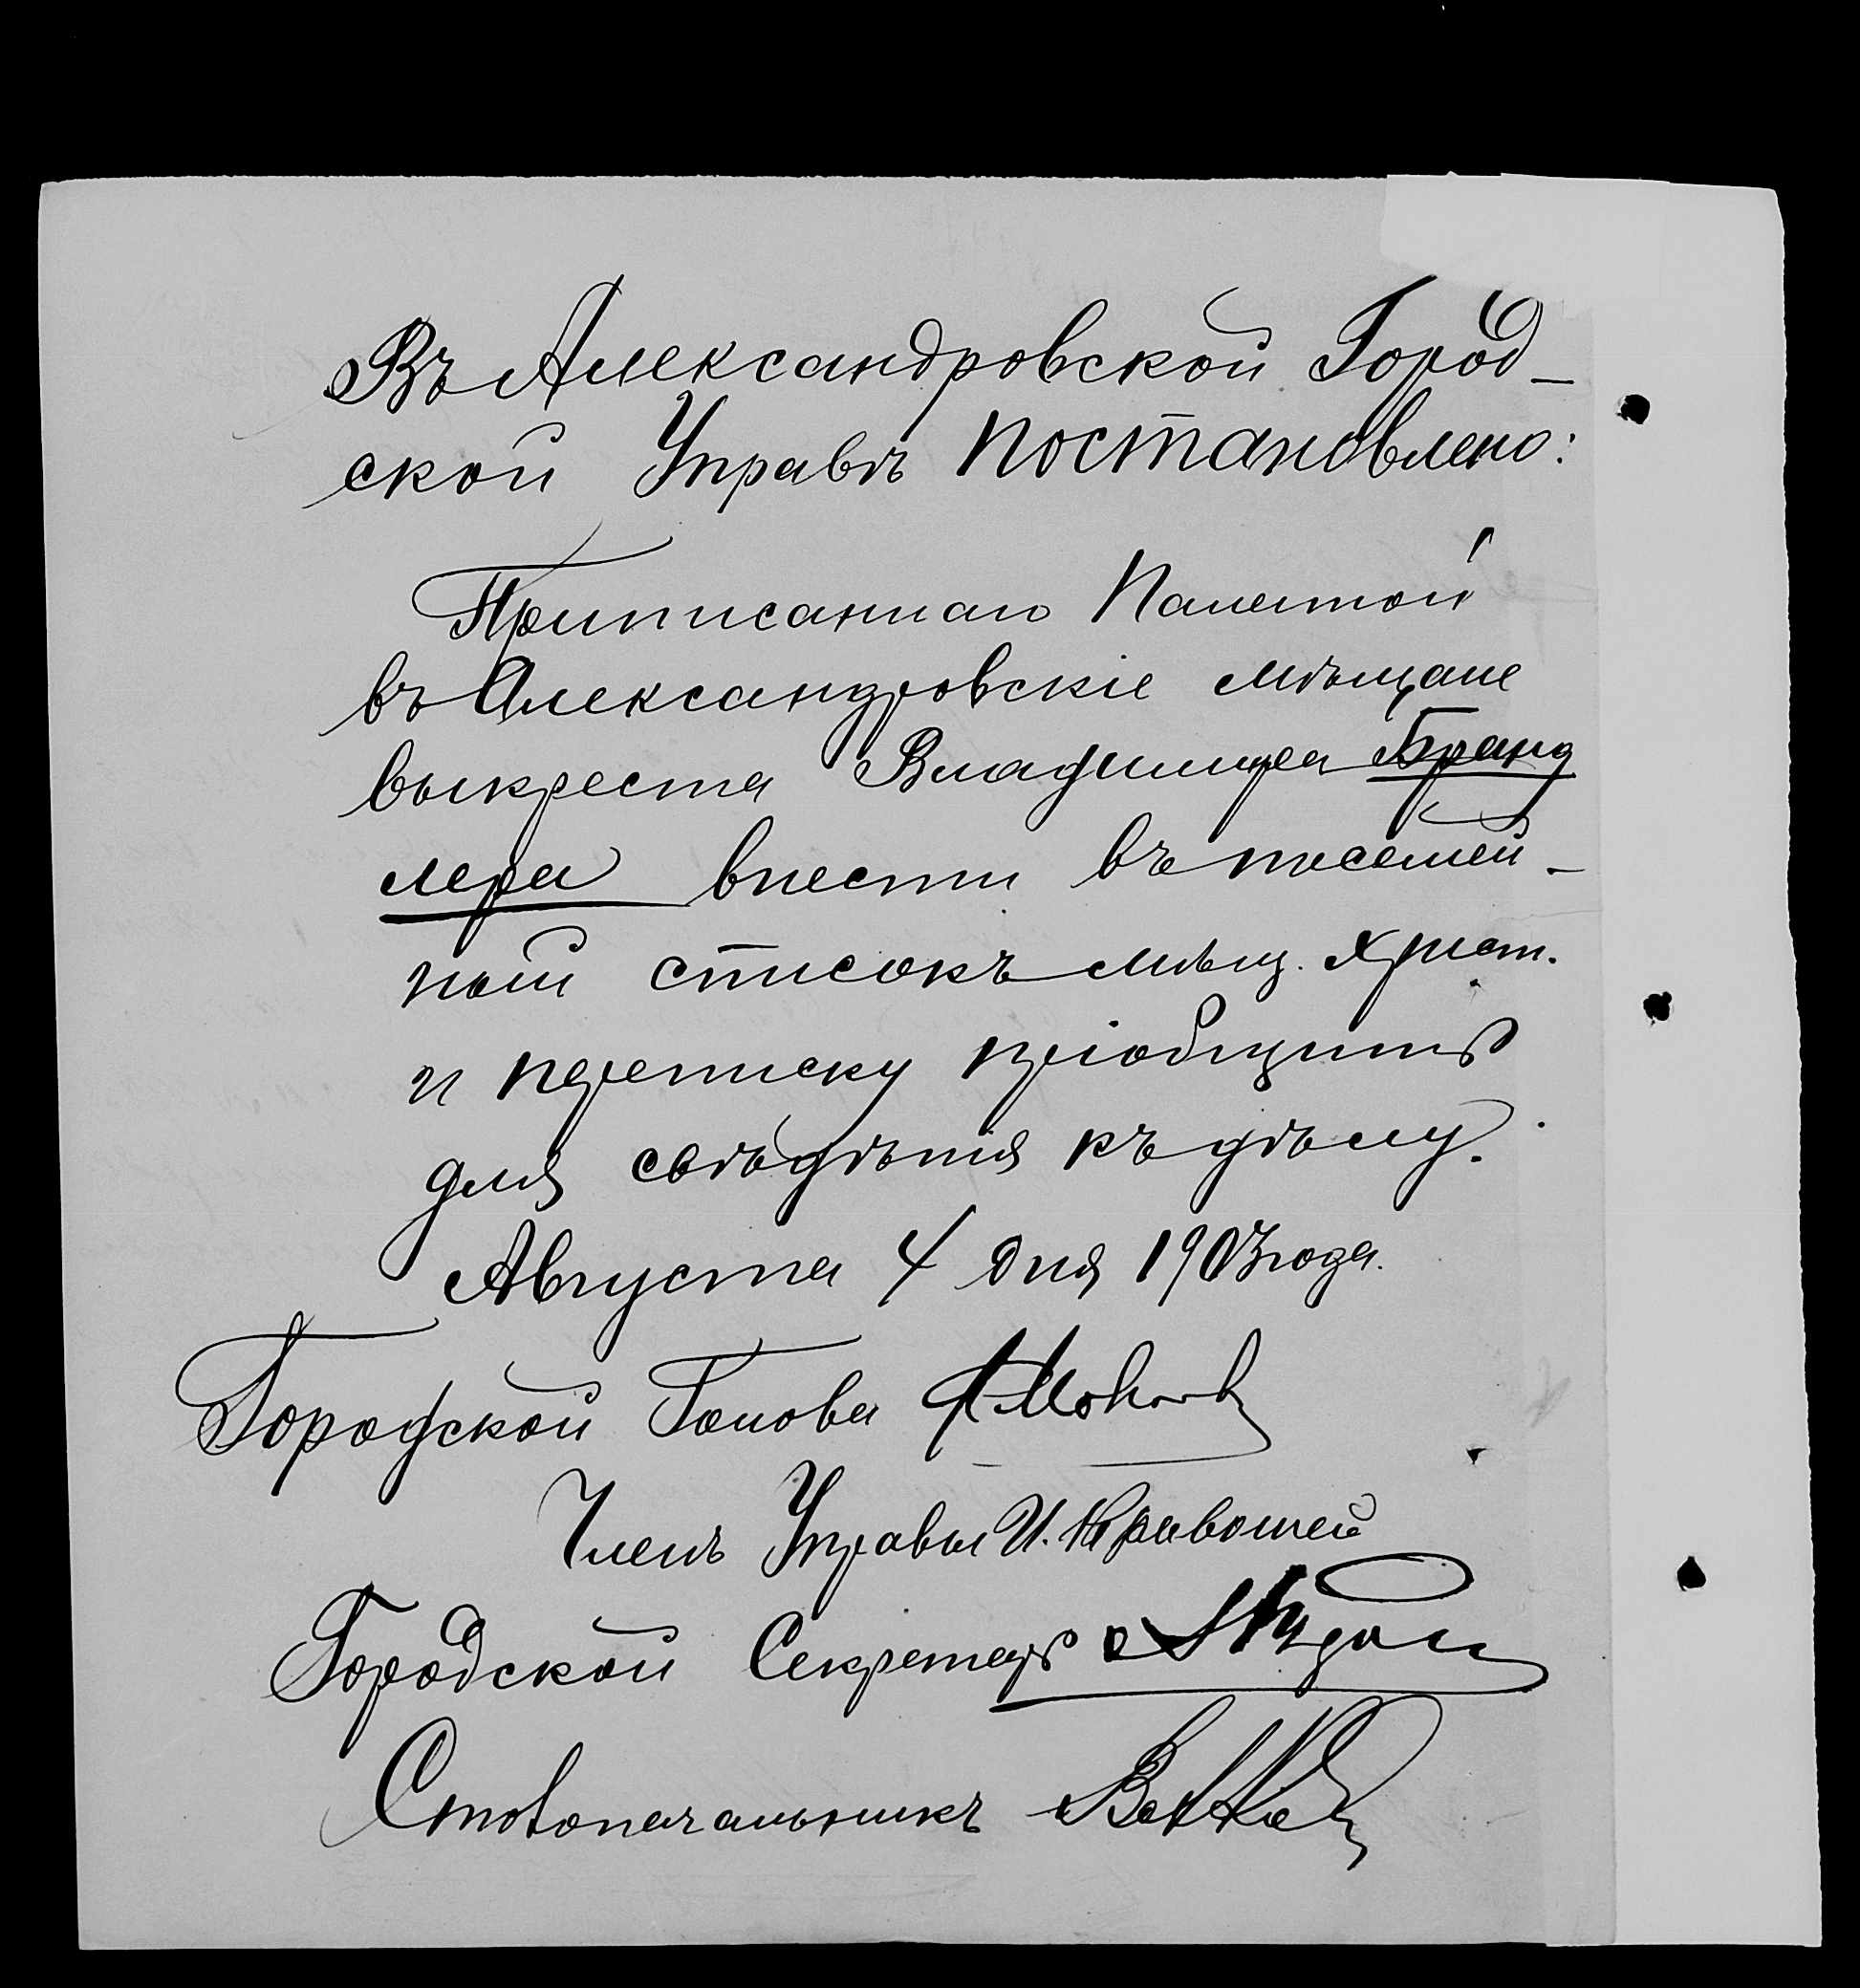 Въ Александровской Город-
ской Управѣ постановлено:
Приписаннаго Палатой
въ Александровскіе мѣщане
выкреста Владимира Бранд
лера внести въ посемей-
ный списокъ мѣщ. христ.
и переписку пріобщить
для свѣдѣнія къ дѣлу.
Августа 4 дня 1903 года.
Городской Голова
Членъ Управы И.
Городской Секретарь
Столоначальникъ